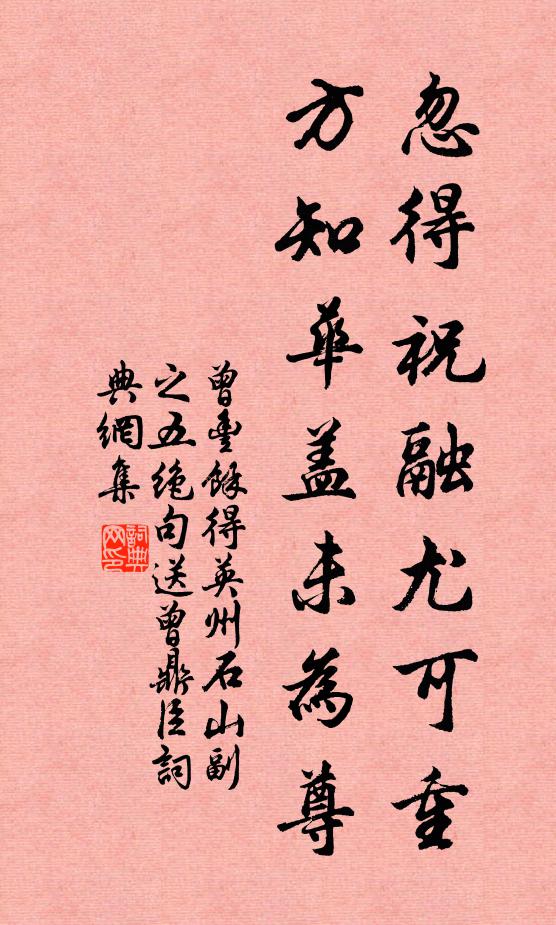 忽得祝融尤可重
方知華蓋未為尊
曾豐餘得英州石山副
之五絶句送曾鼎臣詞
典網集
詞典網印